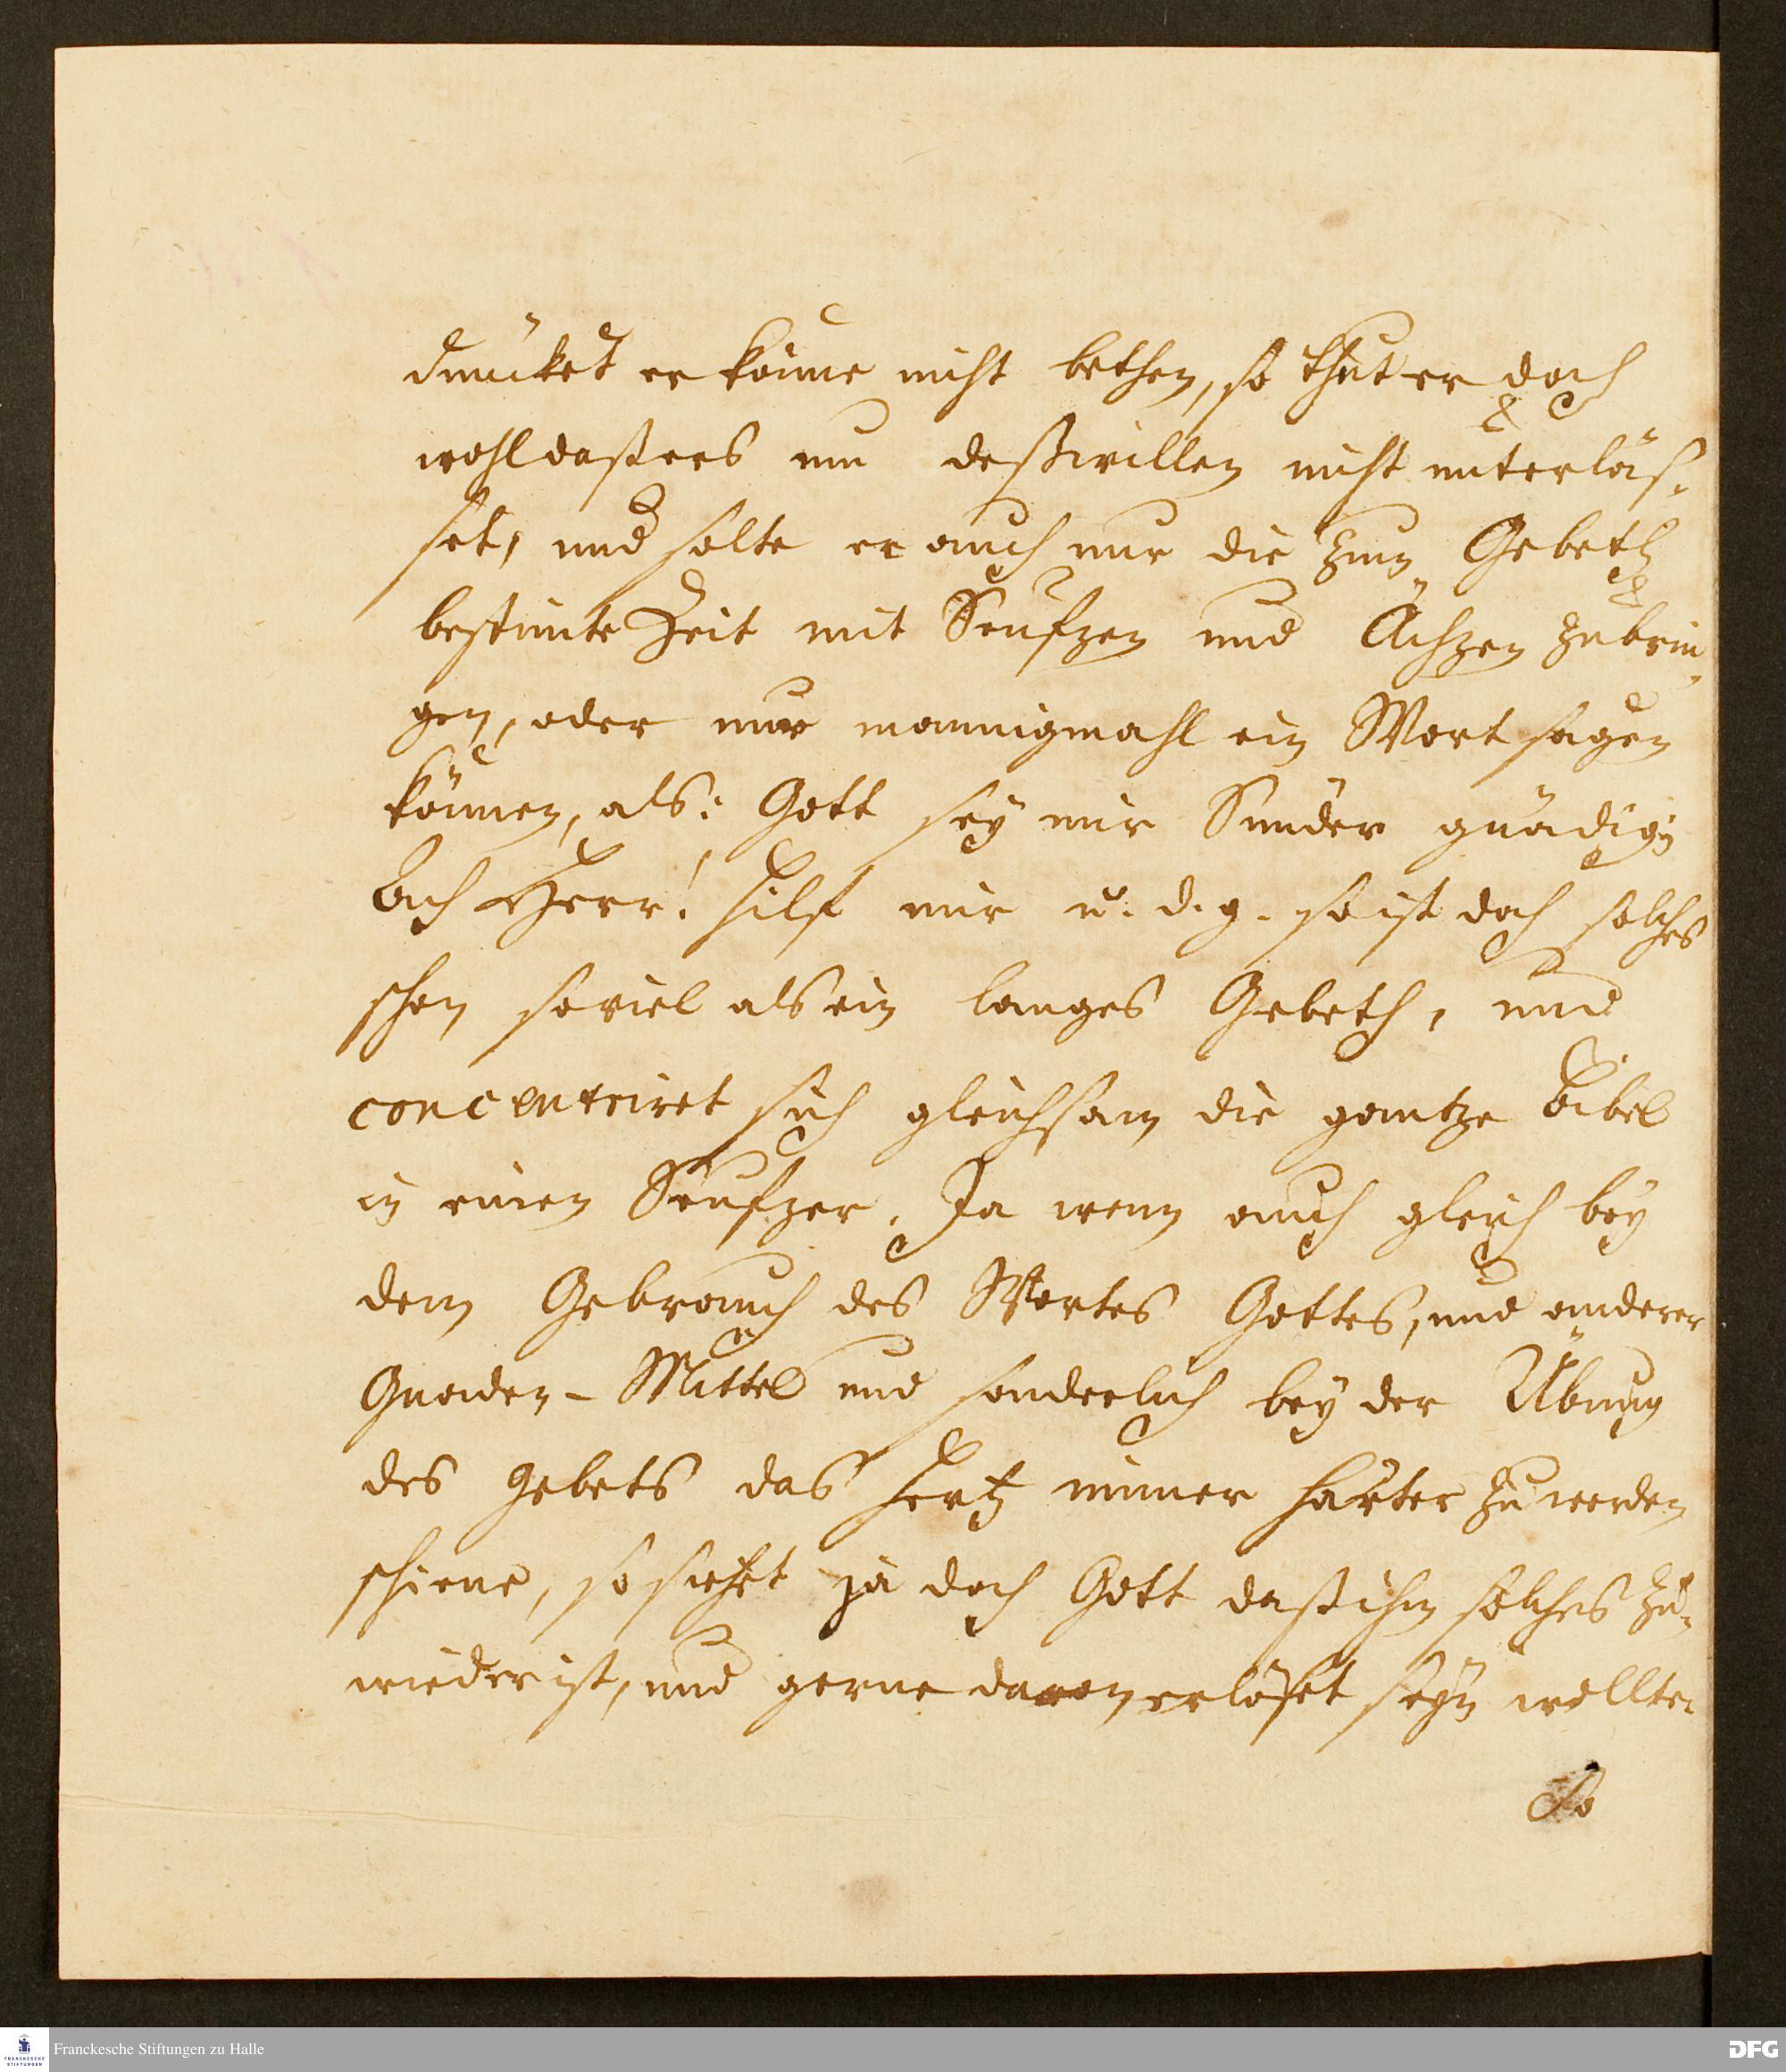 düncket er könne nicht bethen, so thut er doch
wohl daß ers um deßwillen nicht unterläs-
set, und solte er auch nur die zum Gebeth
bestimte Zeit mit Seufzen und Ächzen zubrin-
gen, oder nur mannigmahl ein Wort sagen
können, als: Gott sey mir Sünder gnädig;
Ach Herr! hilf mir u. d. g. so ist doch solches
schon soviel als ein langes Gebeth, und
concentriret sich gleichsam die gantze Bibel
in einen Seufzer. Ja wenn auch gleich bey
dem Gebrauch des Wortes Gottes, und anderer
Gnaden-Mittel und sonderlich bey der Übung
des Gebets das Hertz immer härter zu werden
schiene, so siehet ja doch Gott daß ihm solches zu-
wieder ist, und gerne davon erlöset seyn wollte.
So
Franckesche Stiftungen zu Halle
FRANCKESCHE
STIFTUNGEN
DFG